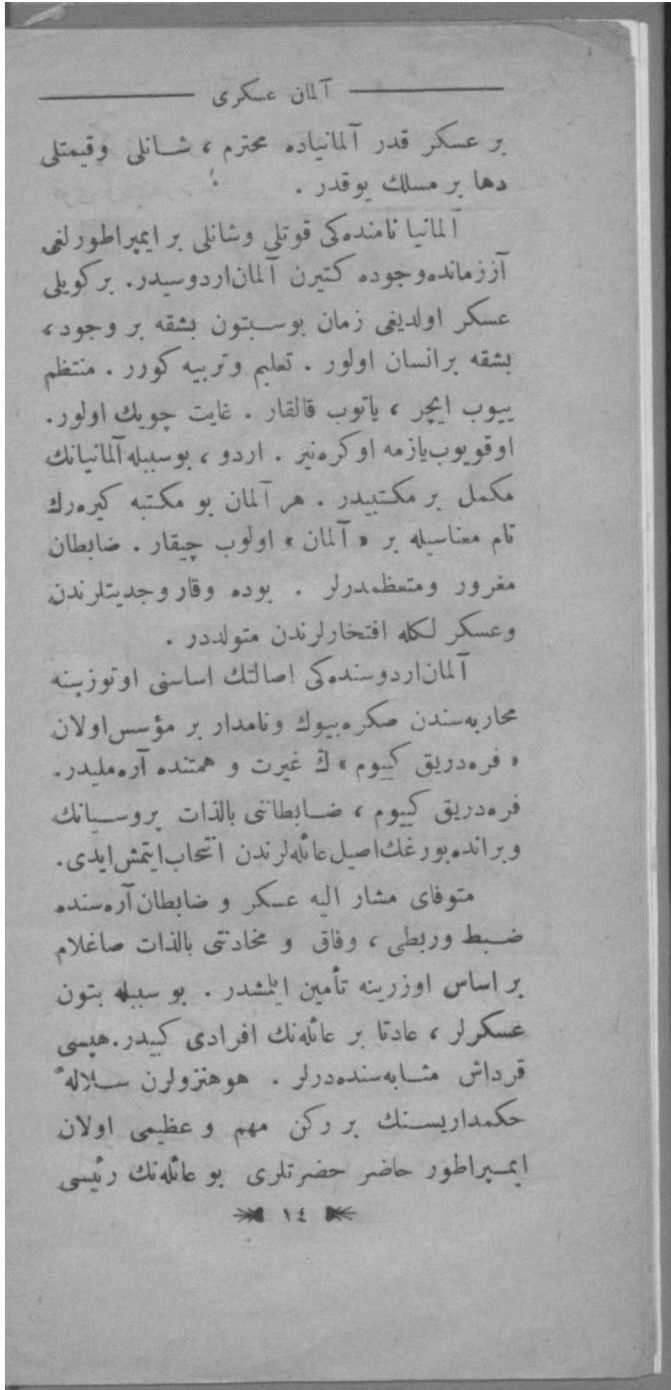 آلمان عسكرى
بر عسكر قدر آلمانياده محترم ، شانلى وقيمتلى
دها بر مسلك يوقدر .
آلمانيا نامنده‌كى قوتلى وشانلى بر ايمپراطورلغى
آززمانده‌وجوده كتيرن آلمان‌اردوسيدر. بركويلى
عسكر اولديغى زمان بوسبتون بشقه بر وجود،
بشقه برانسان اولور . تعليم وتربيه كورر . منتظم
ييوب ايچر ، ياتوب قالقار . غايت چويك اولور.
اوقويوب‌يازمه اوكره‌نير . اردو ، بوسببله آلمانيانك
مكمل بر مكتبيدر . هر آلمان بو مكتبه كيره‌رك
تام معناسيله بر « آلمان » اولوب چيقار . ضابطان
مغرور ومتعظمدرلر . بوده وقار وجديتلرندن
وعسكر لكله افتخارلرندن متولددر .
آلمان‌اردوسنده‌كى اصالتك اساسنى اوتوزسنه
محاربه‌سندن صكره‌بيوك ونامدار بر مؤسس‌اولان
« فره‌دريق كييوم » ك غيرت و همتنده آره‌مليدر.
فره‌دريق كييوم ، ضابطاننى بالذات پروسيانك
وبرانده‌بورغك‌اصيل‌عائله‌لرندن انتخاب‌ايتمش‌ايدى.
متوفاى مشار اليه عسكر و ضابطان‌آره‌سنده
ضبط وربطى ، وفاق و مخادنتى بالذات صاغلام
بر اساس اوزرينه تأمين ايلمشدر . بو سببله بتون
عسكرلر ، عادتا بر عائله‌نك افرادى كبيدر.هپسى
قرداش مثابه‌سنده‌درلر . هوهنزولرن سلالهٔ
حكمداريسنك بر ركن مهم و عظيمى اولان
ايمپراطور حاضر حضرتلرى بو عائله‌نك رئيسى
١٤